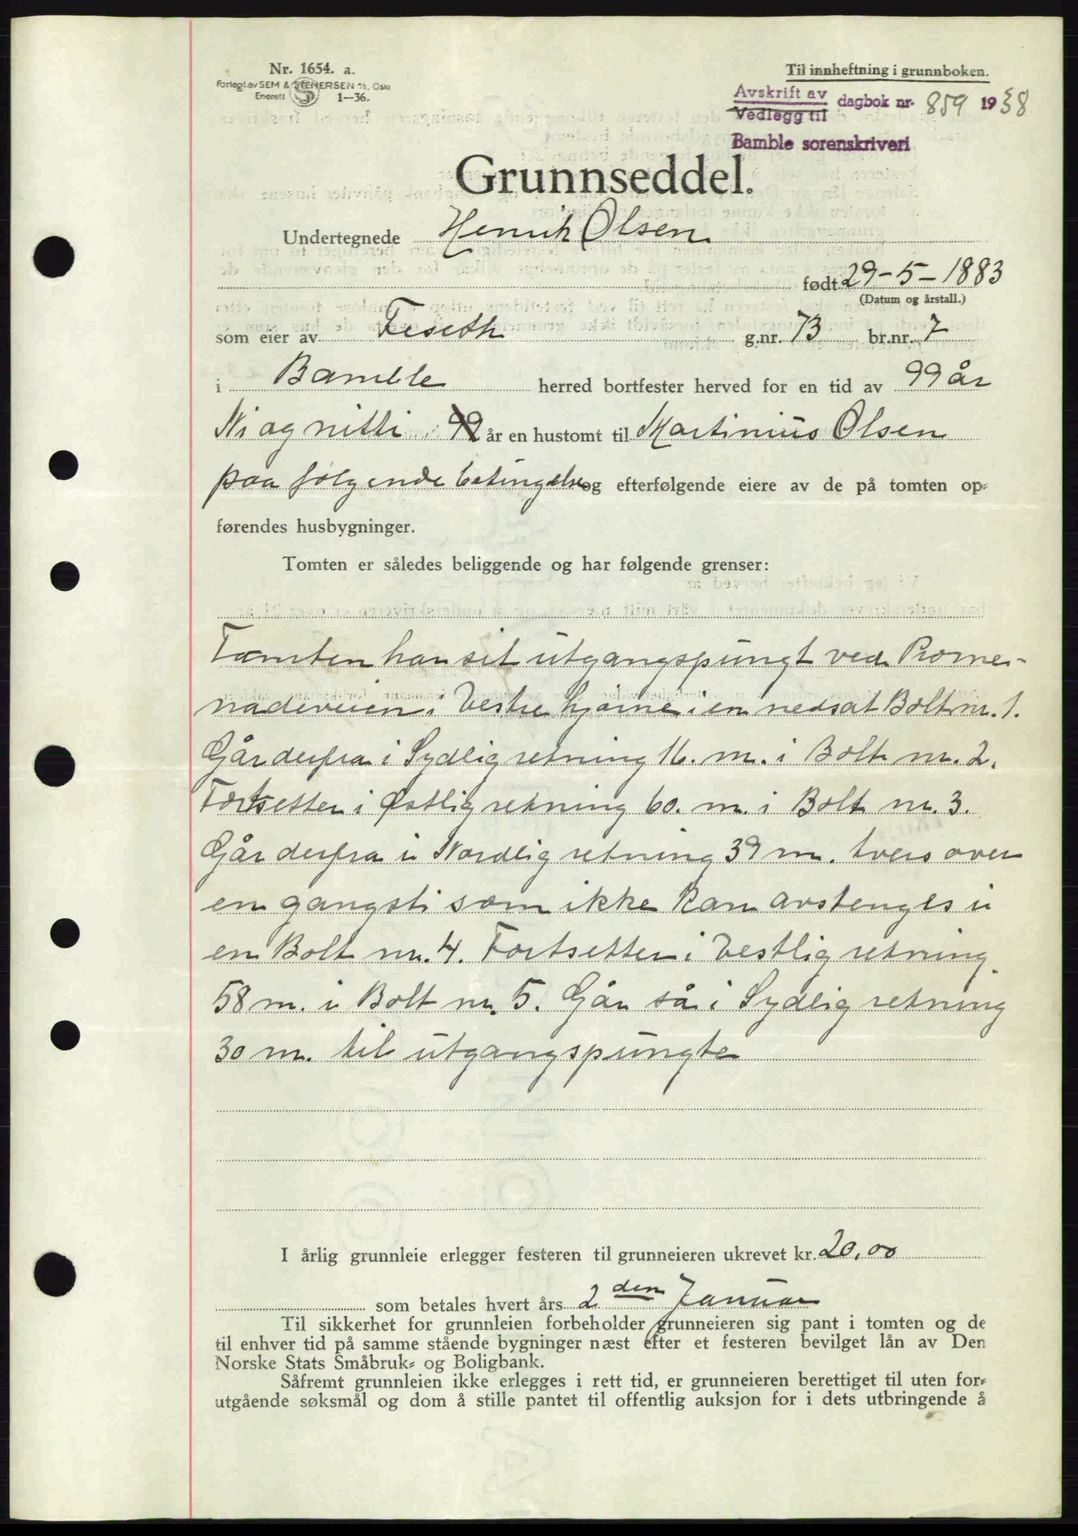 Nr. 1654. a.
Forlagt av SEM & STENERSEN A/S, Oslo
Enerett 1-36.
Til innheftning i grunnboken.
Avskrift av
Vedlegg til
dagbok nr. 859 1938
Bamble sorenskriveri
Grunnseddel.
Undertegnede Henrik Olsen
født 29-5-1883
(Datum og årstall.)
som eier av Feseth g.nr. 73 br.nr. 7
i Bamble herred bortfester herved for en tid av 99 år
Ni og nitti 99 år en hustomt til Martinius Olsen
paa følgende betingelse og efterfølgende eiere av de på tomten op-
førendes husbygninger.
Tomten er således beliggende og har følgende grenser:
Tomten har sit utgangspungt ved Prome-
nadeveien i Vestre hjørne i en nedsat Bolt nr. 1.
Går derfra i Sydlig retning 16. m. i Bolt nr. 2.
Fortsetter i Østlig retning 60. m. i Bolt nr. 3.
Går derfra i Nordlig retning 39 m. tvers over
en gangsti som ikke kan avstenges i
en Bolt nr. 4. Fortsetter i Vestlig retning
58 m. i Bolt nr. 5. Går så i Sydlig retning
30 m. til utgangspungte
I årlig grunnleie erlegger festeren til grunneieren ukrevet kr. 20,00
som betales hvert års 2 den Januar
Til sikkerhet for grunnleien forbeholder grunneieren sig pant i tomten og de
til enhver tid på samme stående bygninger næst efter et festeren bevilget lån av Den
Norske Stats Småbruk- og Boligbank.
Såfremt grunnleien ikke erlegges i rett tid, er grunneieren berettiget til uten for-
utgående søksmål og dom å stille pantet til offentlig auksjon for i dets utbringende å